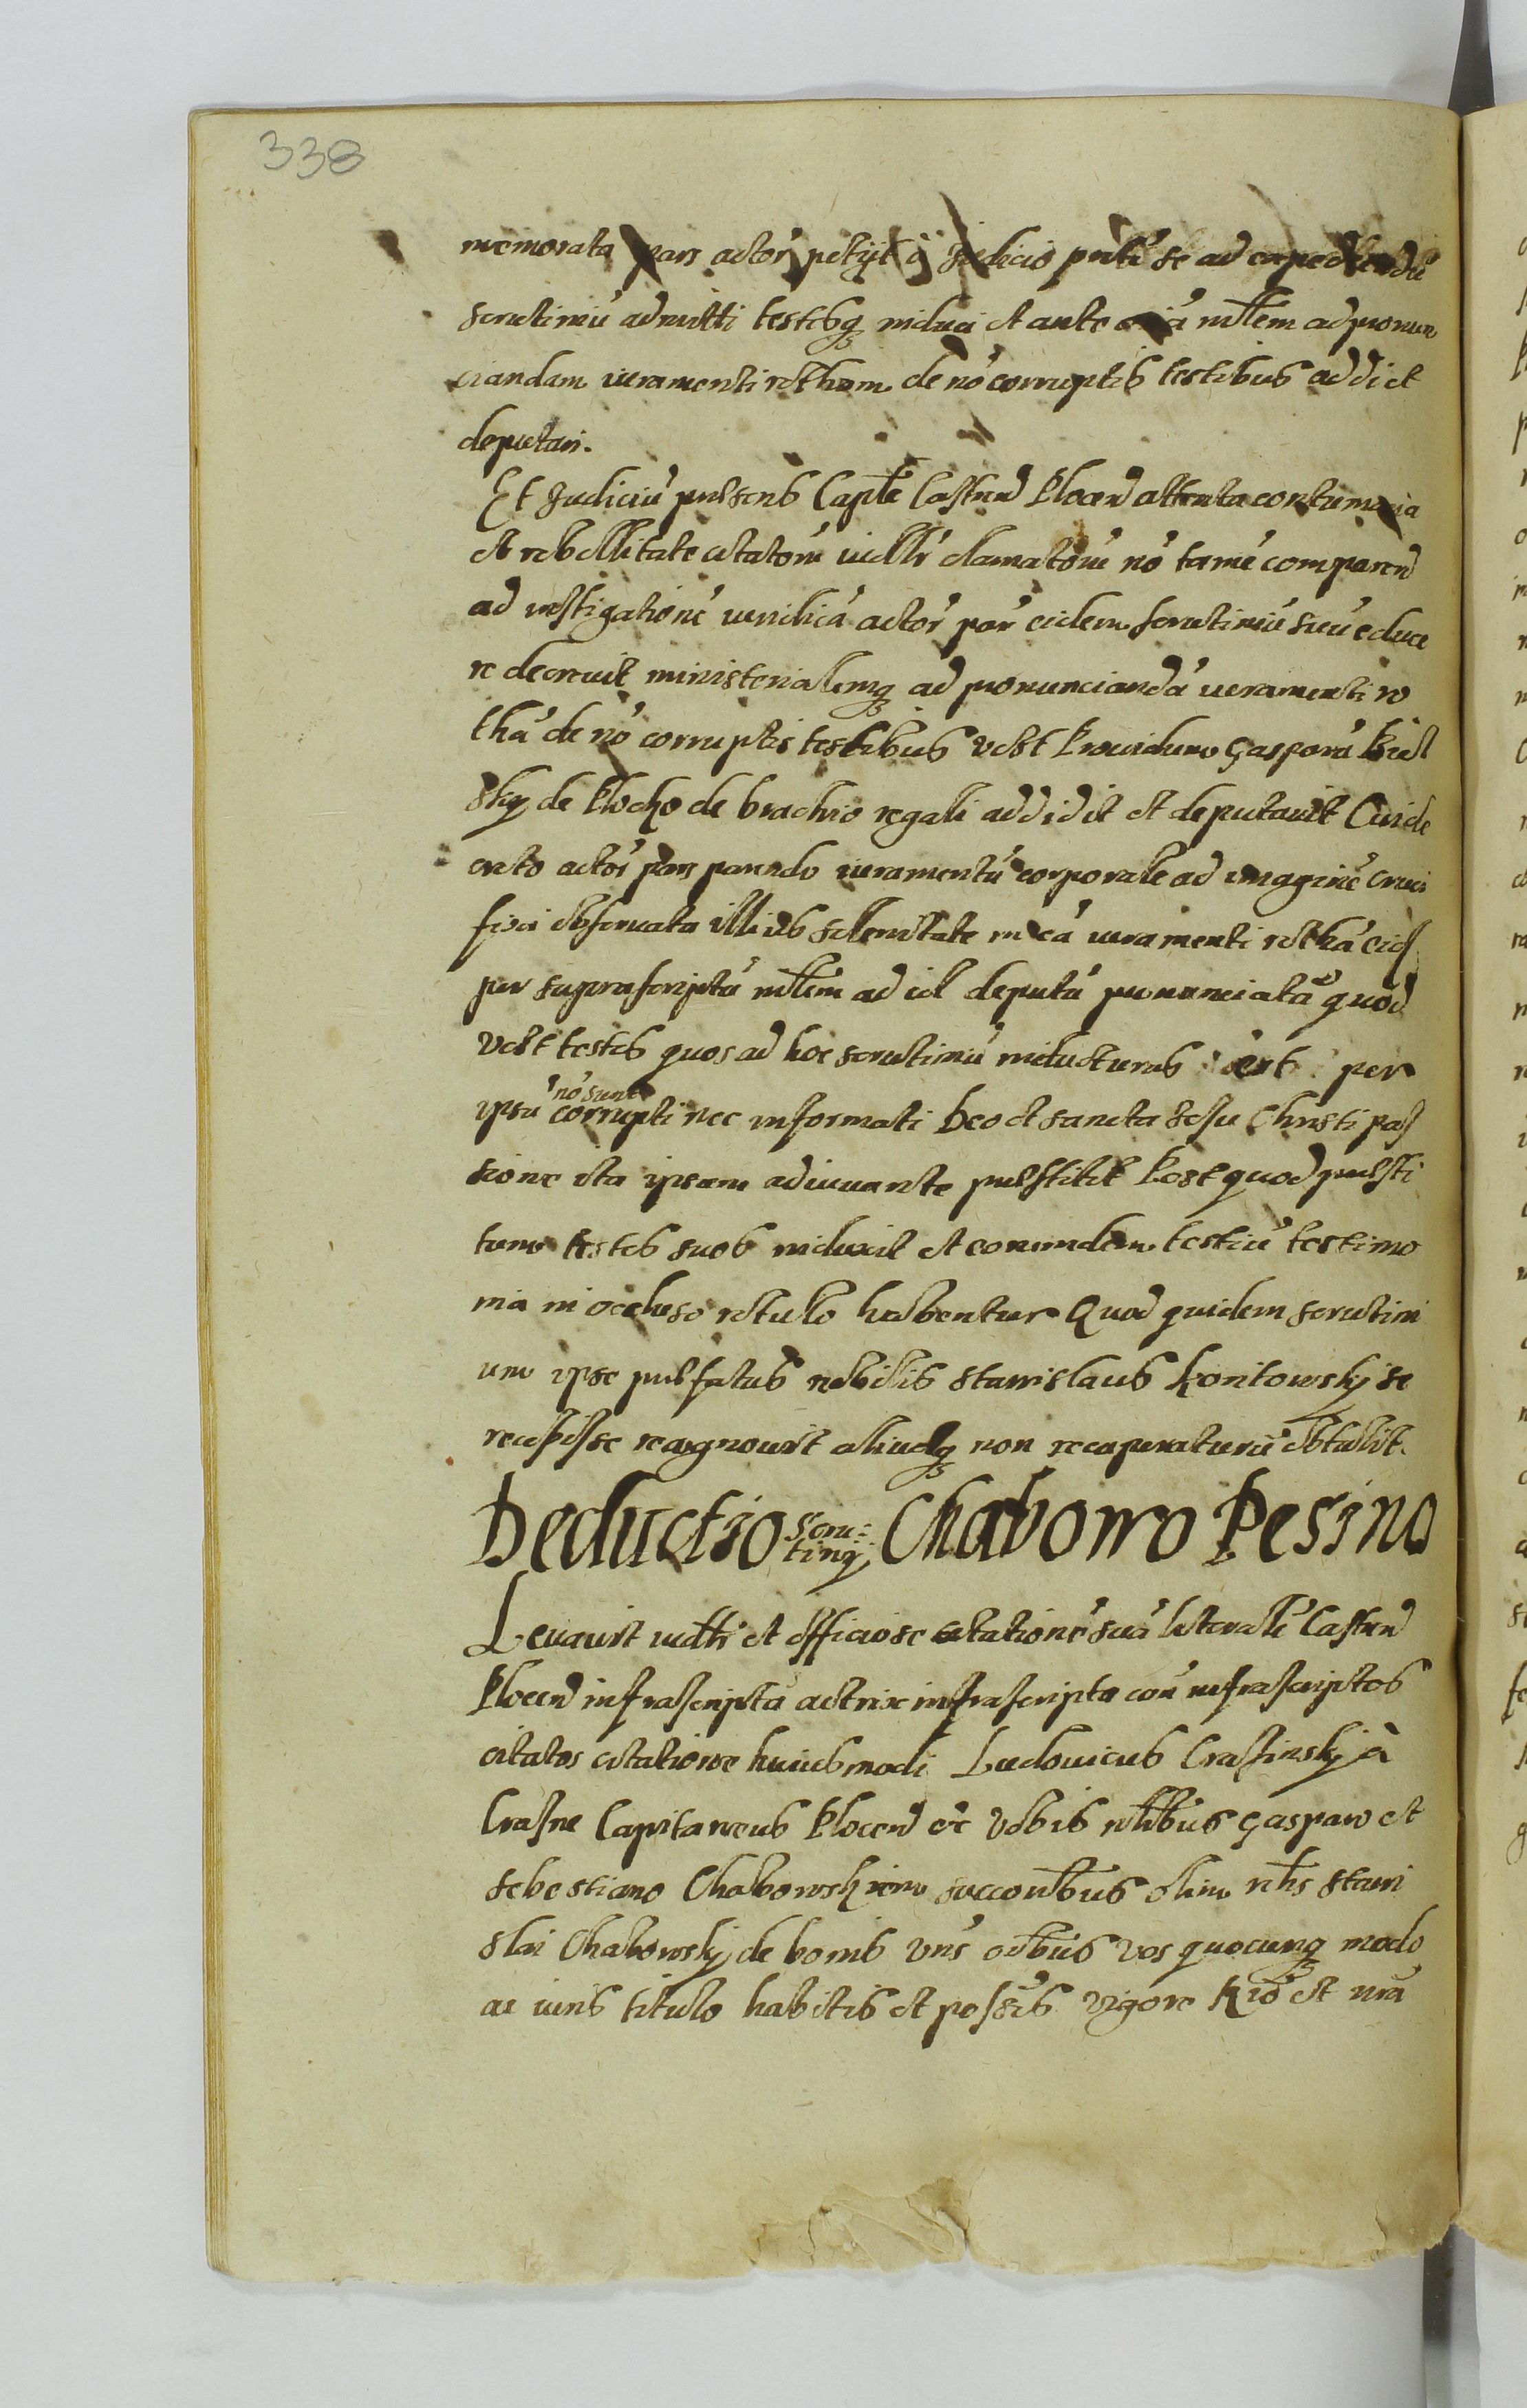 338
memorata pars actor petyt a Judicio pnti se ad expediendu
scrutiniu admitti testesq induci et ante oia mtlem ad pronun
ciandam iuramenti rotham de no corruptis testibus addi et
deputari.
Et Judiciu presens Caple Castren Plocen attenta contumacia
et rebellitate citatoru iudltr clamatoru no tame comparen
ad instigatione iuridica actor par eidem scrutiniu suu educe
re decrevit ministerialemq ad pronuncianda iuramenti ro
tha de no corruptis testibus vdlt Providum Gasparu Biel
sky de Plocko de brachio regali addidit et deputavit Cui de
creto actor pars parendo iuramentu corporale ad imagine cruci
fixi observata illius solenitate in ea iuramenti rotha eid
per suprascriptu mtlem ad id deputu pronunciata quod
vdlt testes quos ad hoc scrutiniu inducturus est per
ipsu no sunt corrupti nec informati Deo et sancta Jesu Christi pas
sione ita ipsum adiuvante prestitit Post quod presti
tum testes suos induxit et eorumdem testiu testimo
nia in occluso rotulo habentur Quod quidem scrutini
um ipse prefatus nobilis Stanislaus Konitowsky se
recepisse recognovit aliudq non recuperaturu obtulit.
Deductio scru=tinij Chabowo Pesino
Levavit iudltr et officiose citatione sua literale Castren
Plocen infrascripta actrix infrascripta con infrascriptos
citatos citatione huiusmodi Ludovicus Crasinsky a
Crasne Capitaneus Plocen etc Vobis nbilibus Gasparo et
Sebestiano Chabowskiem succoribus olim nblis Stani
slai Chabowsky de bonis vris oibus vos quocunq modo
ac iuris titulo habitis et possis vigore Rio et nra